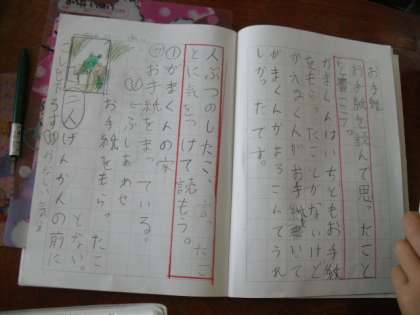 お手紙
お手紙を読んで思ったこと
を書こう。
がまくんはいちどもお手紙
をもらったことがないけど
かえるくんがお手紙書いて
がまくんがよろこんでうれ
しかったです。
人ぶつのしたこと、言ったこ
とに気をつけて読もう。
①がまくんの家
お手紙をまっている。
ふしあわせ
お手紙をもらったこ
とない。
二人
げんかんの前に
かなしい